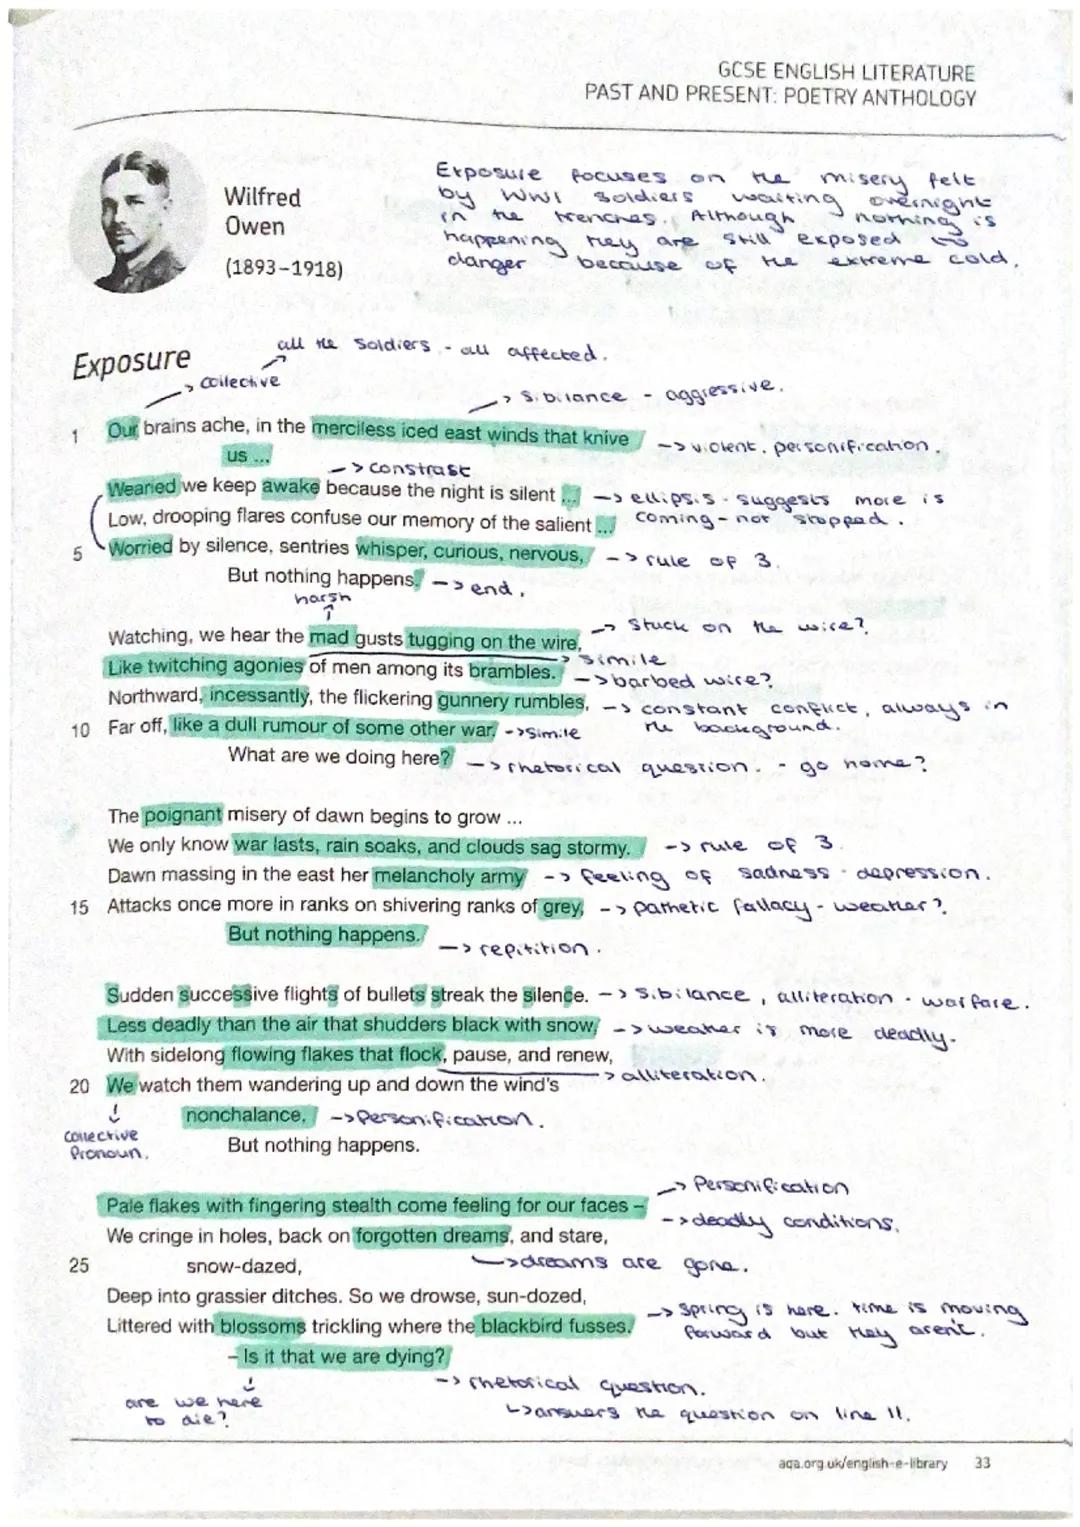 GCSE ENGLISH LITERATURE
PAST AND PRESENT: POETRY ANTHOLOGY
Wilfred
Owen
(1893–1918)
Exposure focuses on the misery felt
by WW1 soldiers waiting overnight
in the trenches. Although nothing is
happening they are still exposed to
danger because of the extreme cold.
all the soldiers - all affected.
Exposure
-> collective
-> sibilance - aggressive.
1 Our brains ache, in the merciless iced east winds that knive
us ...
-> violent, personification.
-> constrast
Wearied we keep awake because the night is silent ...
-> ellipsis - suggests more is
coming - not stopped.
Low, drooping flares confuse our memory of the salient ...
5 Worried by silence, sentries whisper, curious, nervous, -> rule of 3.
But nothing happens. -> end.
harsh
Watching, we hear the mad gusts tugging on the wire, -> stuck on the wire?
-> simile
Like twitching agonies of men among its brambles. -> barbed wire?
Northward, incessantly, the flickering gunnery rumbles, -> constant conflict, always in
the background.
10 Far off, like a dull rumour of some other war. -> simile
What are we doing here? -> rhetorical question. - go home?
The poignant misery of dawn begins to grow ...
We only know war lasts, rain soaks, and clouds sag stormy. -> rule of 3.
Dawn massing in the east her melancholy army -> feeling of sadness - depression.
15 Attacks once more in ranks on shivering ranks of grey, -> pathetic fallacy - weather?
But nothing happens. -> repitition.
Sudden successive flights of bullets streak the silence. -> sibilance, alliteration - warfare.
Less deadly than the air that shudders black with snow, -> weather is more deadly.
With sidelong flowing flakes that flock, pause, and renew,
-> alliteration.
20 We watch them wandering up and down the wind's
nonchalance, -> Personification.
collective
pronoun.
But nothing happens.
-> Personification
Pale flakes with fingering stealth come feeling for our faces –
-> deadly conditions.
We cringe in holes, back on forgotten dreams, and stare,
25 snow-dazed,
-> dreams are gone.
Deep into grassier ditches. So we drowse, sun-dozed,
Littered with blossoms trickling where the blackbird fusses.
-> Spring is here. time is moving
forward but they aren't.
– Is it that we are dying?
-> rhetorical question.
are we here
to die?
-> answers the question on line 11.
aqa.org.uk/english-e-library 33